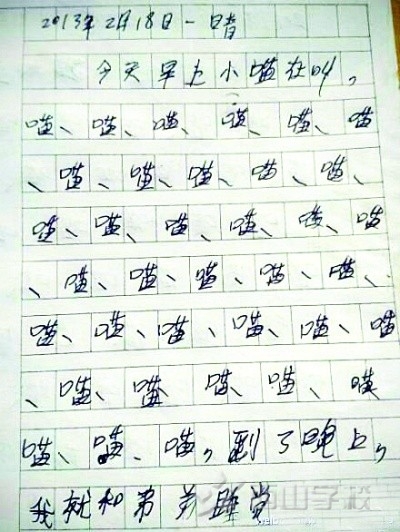 2013年2月18日一晴
今天早上小喵在叫，
喵、喵、喵、喵、喵、喵
、喵、喵、喵、喵、喵、
喵、喵、喵、喵、喵、喵
、喵、喵、喵、喵、喵、
喵、喵、喵、喵、喵、喵
、喵、喵 喵、喵、喵
喵、喵、喵，到了晚上，
我就和弟弟睡觉
山学校